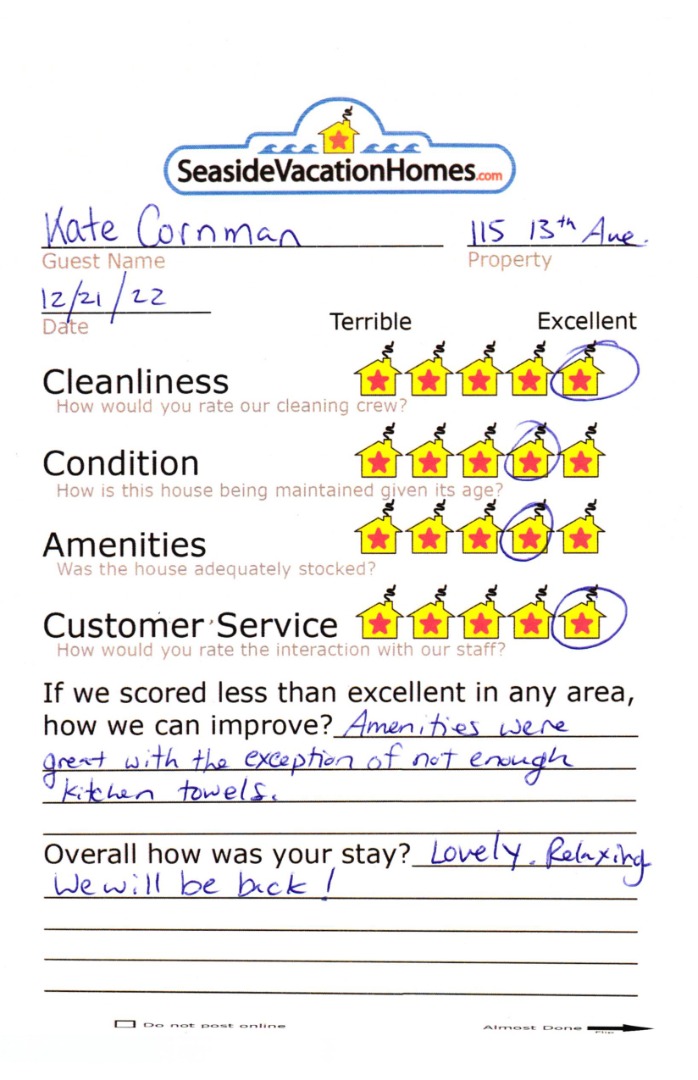 SeasideVacationHomes.com
Kate Cornman 115 13th Ave.
Guest Name Property
12/21/22
Date
Terrible Excellent
Cleanliness
How would you rate our cleaning crew?
Condition
How is this house being maintained given its age?
Amenities
Was the house adequately stocked?
Customer Service
How would you rate the interaction with our staff?
If we scored less than excellent in any area,
how we can improve? Amenities were
great with the exception of not enough
kitchen towels.
Overall how was your stay? Lovely. Relaxing
We will be back!
Do not post online Almost Done
Flip